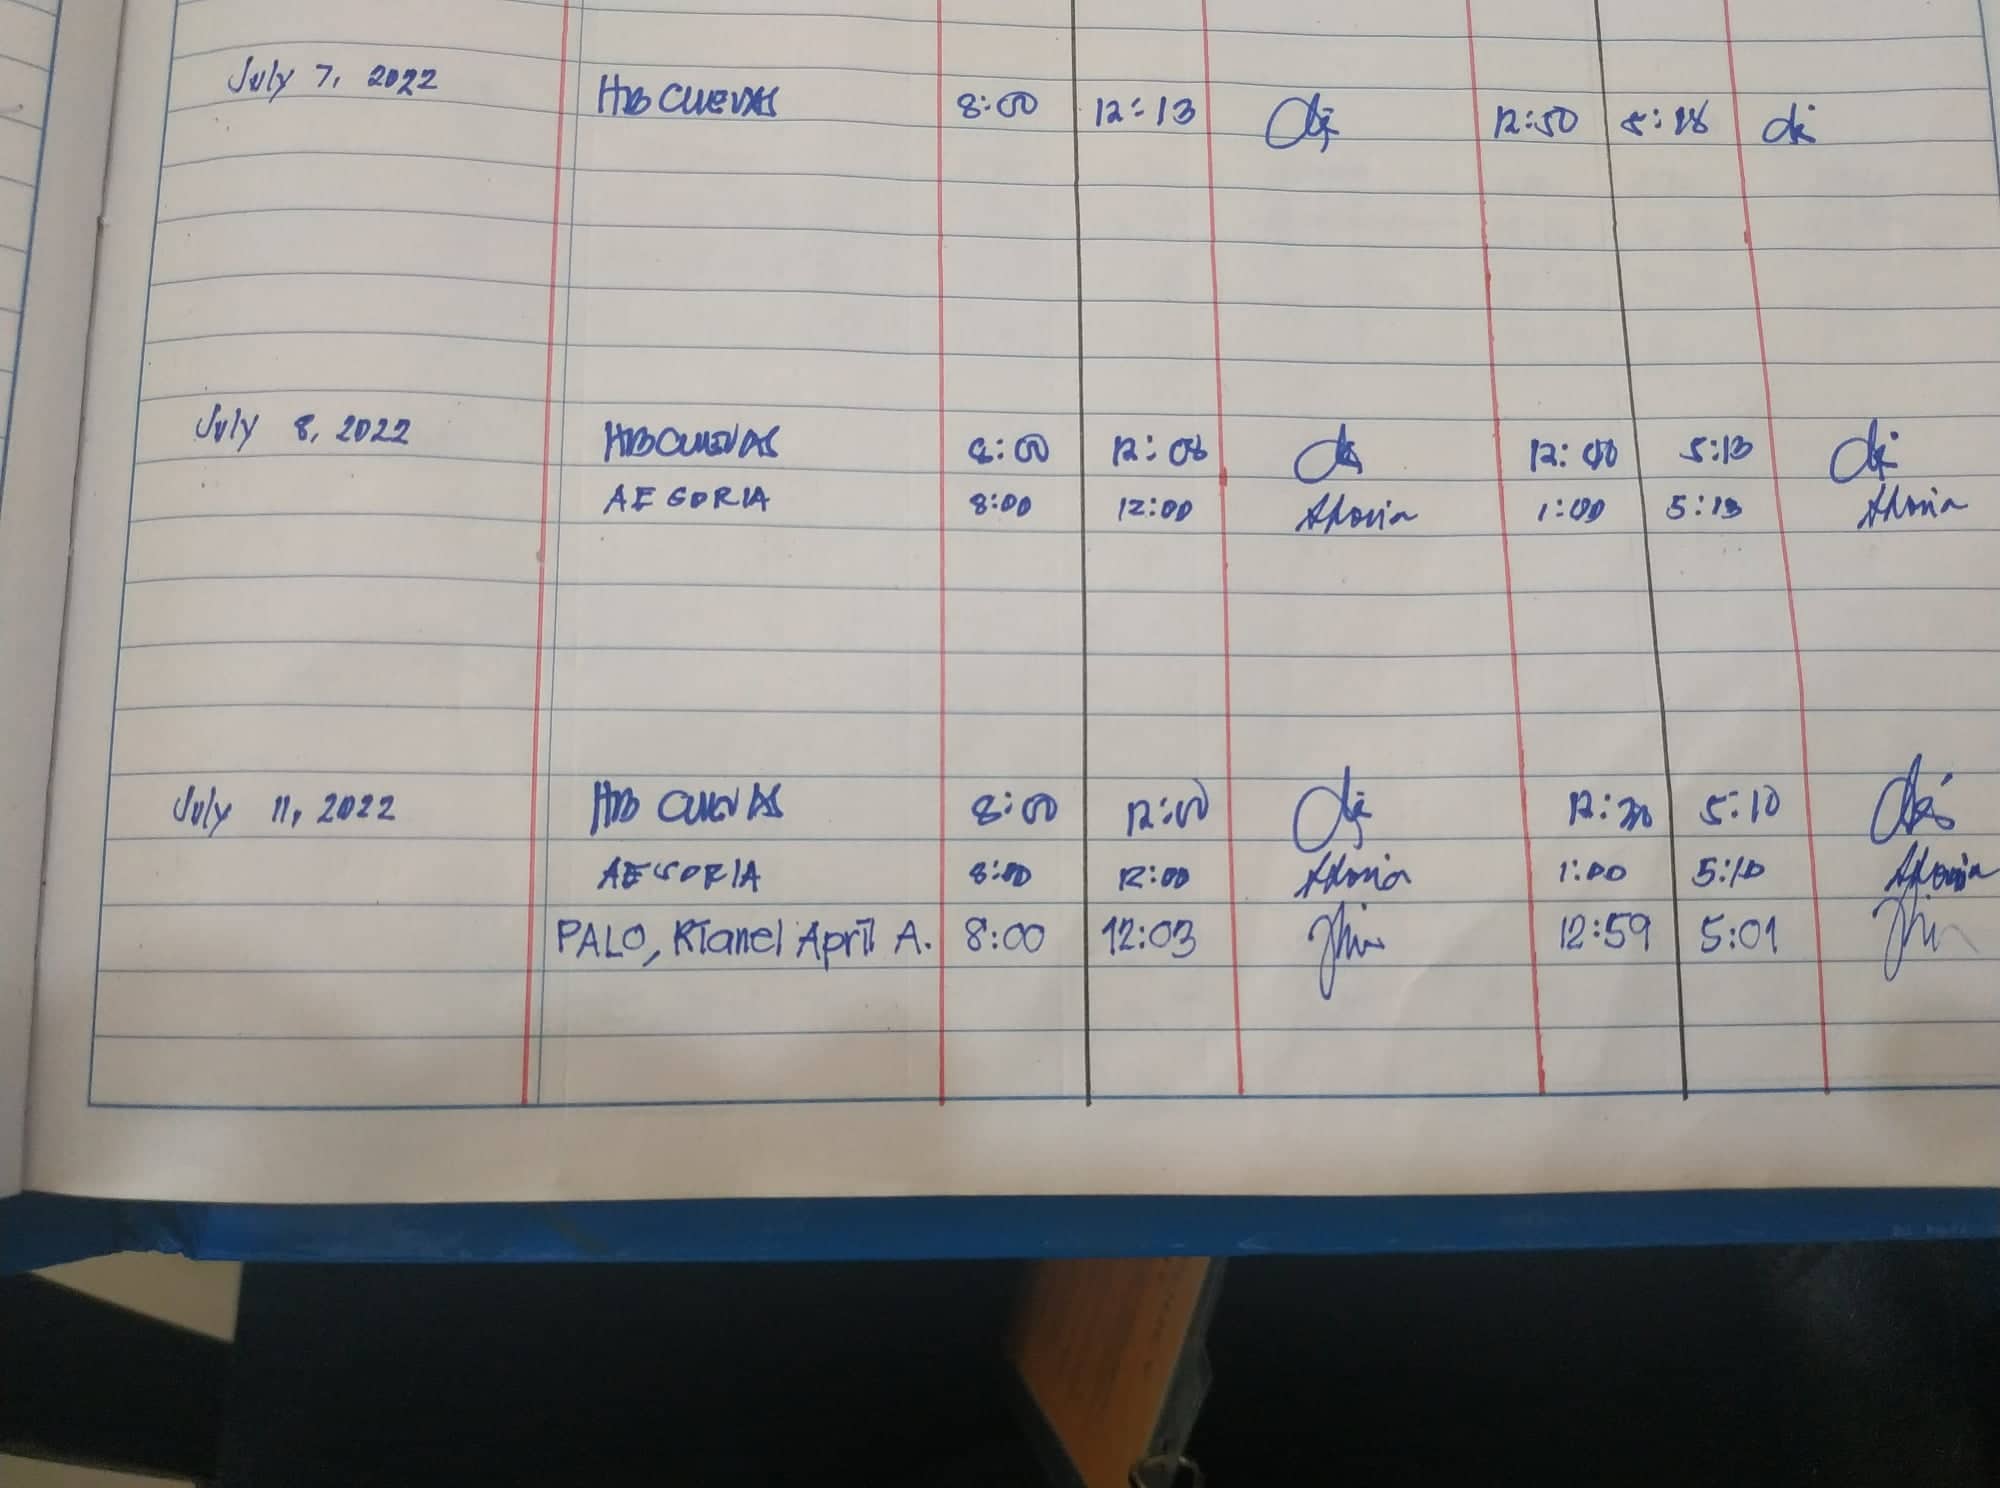 July 7, 2022 HB CUEVAS 8:00 12:13 12:50 5:18
July 8, 2022 HB CUEVAS 8:00 12:06 5:13
AE GORIA 8:00 12:00 1:00 5:13
July 11, 2022 HB CUEVAS 8:00 12:00 5:10
AE GORIA 8:00 12:00 1:00 5:10
PALO, Kianel April A. 8:00 12:03 12:59 5:01